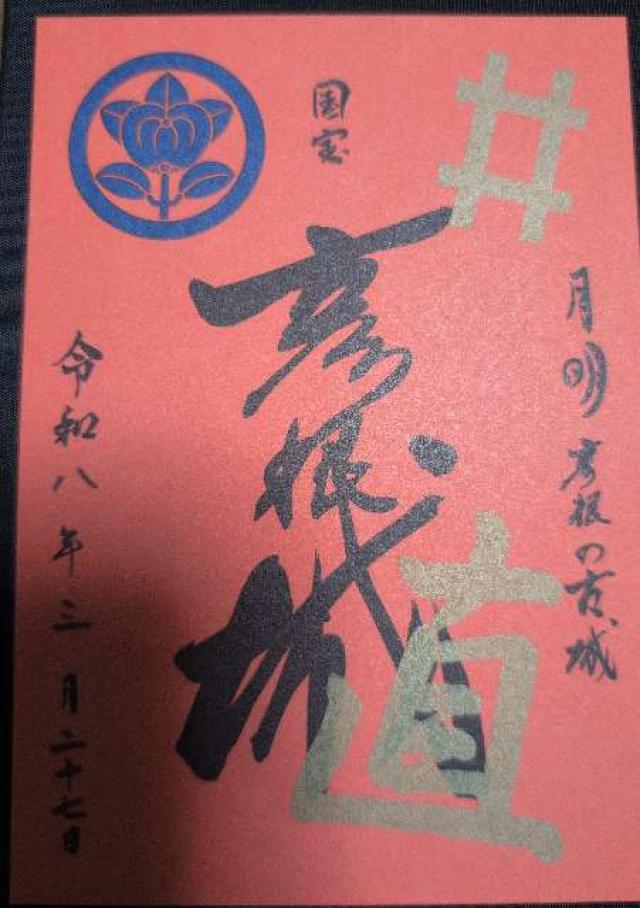 井
月明 彦根の古城
国宝
彦根城
直
令和八年三月二十七日